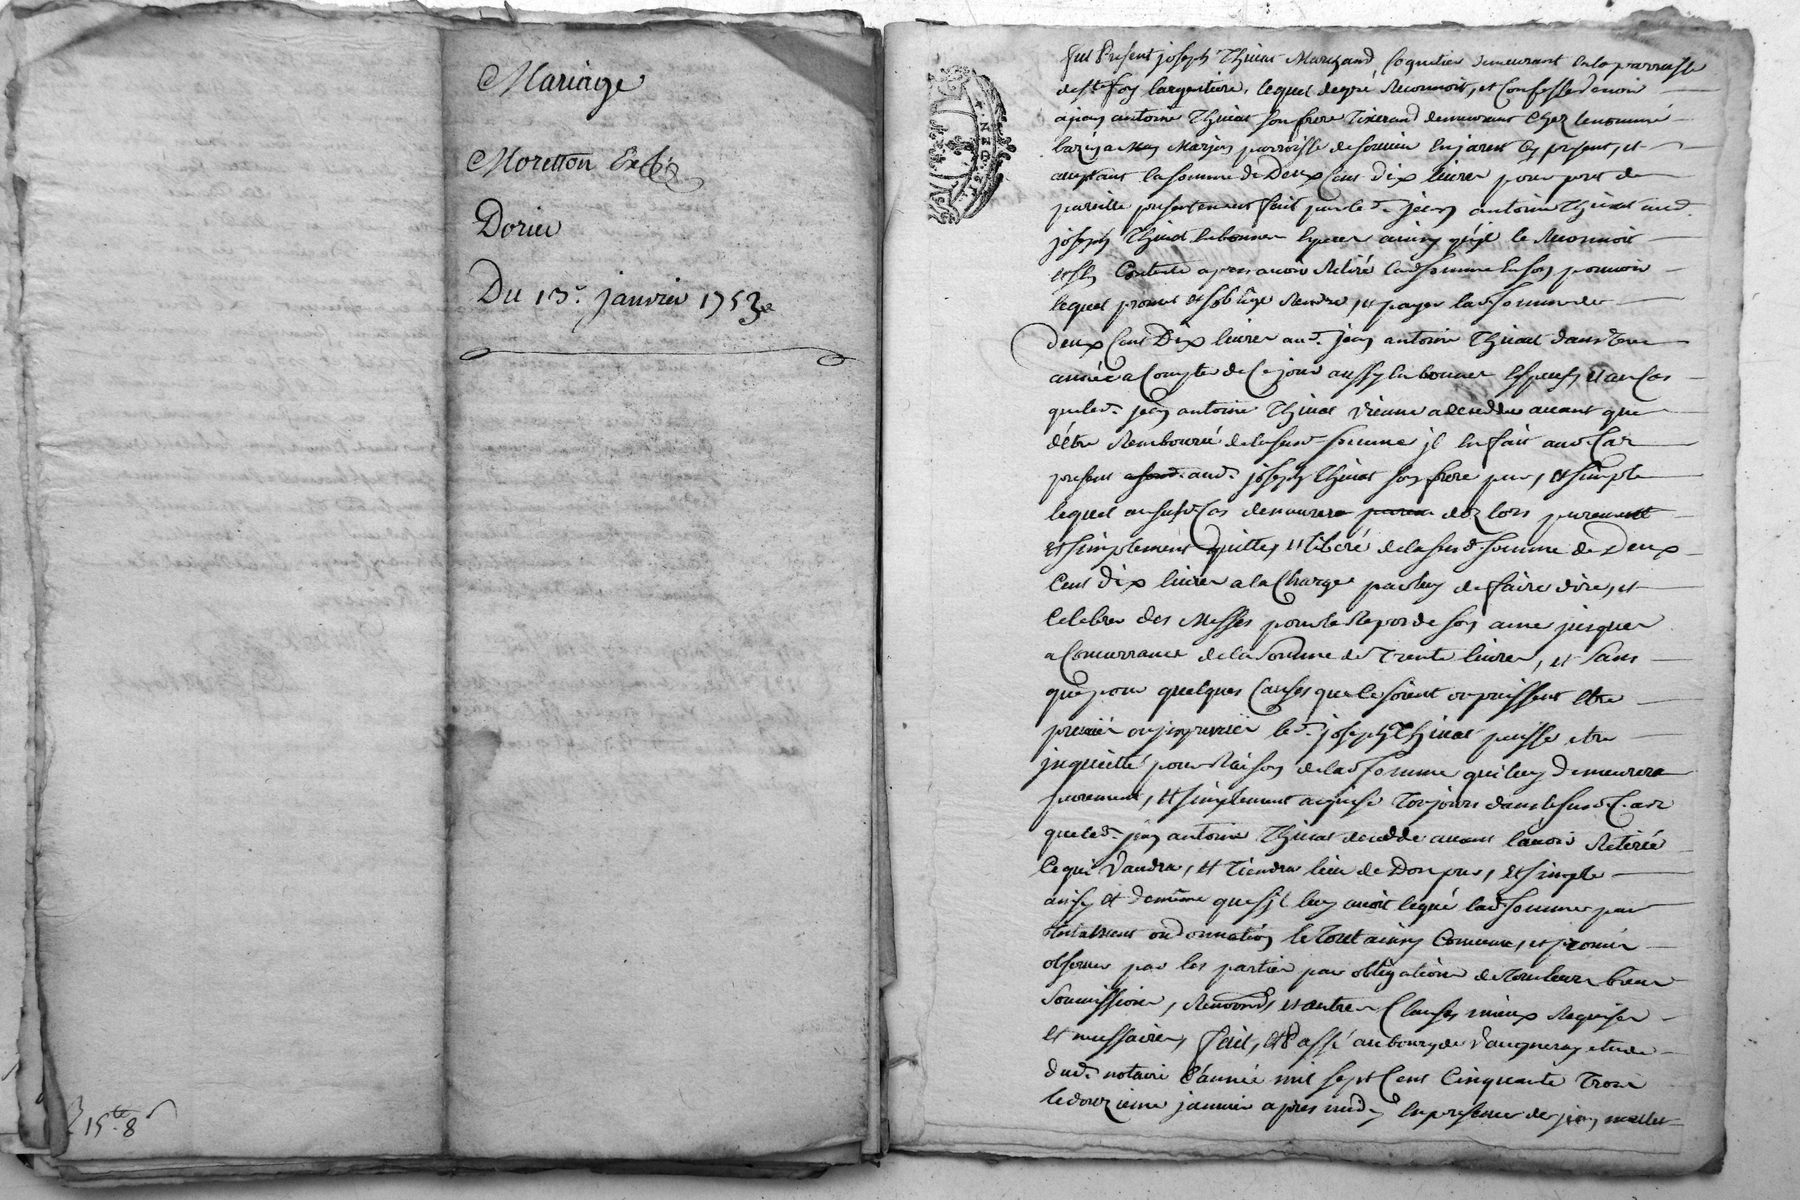 Mariage
Moretton &
Dorier
Du 13e. janvier 1753
15 8
fut Present joseph Thivat Marchand Coquetier demeurant en la parroisse
de Ste foy largentiere, lequel de gré Reconnoit, et Confesse devoir
a jean antoine Thivat son frere Tixerand demeurant chez le nommé
Marjon parroisse de en jarest Cy present, et
acceptant la somme de Deux Cent dix livres pour pret de
pareille presentement fait par led. jean antoine Thivat aud.
joseph Thivat en bonnes especes ainsy qu'il le Reconnoit
Contente apres avoir Retiré lad. somme en son pouvoir
lequel promet et s'oblige Rendre, et payer lad. somme de
Deux Cent Dix livres aud. jean antoine Thivat dans une
année a Compter de Ce jour aussy en bonnes especes et au Cas
que led. jean antoine Thivat vienne a deceder avant que
d'être Remboursé de la susd. somme jl en fait aud. Cas
present aud. joseph Thivat son frere pur, et simple
lequel aususd. Cas demeurera dez lors purement
et simplement quitte, et liberé de la susd. somme de Deux
Cent dix livres a la Charge par luy de faire dire, et
Celebrer des Messes pour le Repos de son ame jusques
a Concurrance de la somme de Trente livres, et sans
que pour quelques Causes que ce soient ou puissent etre
le d. joseph Thivat puisse etre
jnquietté pour Raison de lad. somme qui luy demeurera
purement, et simplement acquise Toujours dans le susd. Cas
que led. jean antoine Thivat decedde avant l'avoir Retirée
Ce qui Vaudra, et Tiendra lieu de Don pur, et simple
ainsy et de même que s'il luy avoit legué lad. somme par
testament ou donnation le Tout ainsy Convenu, et promis
observer par les parties par obligation de Tous leurs biens
Soumissions, Renonds et autres Clauses mieux Requises
et necessaires, fait, et Passé au bourg de Vaugneray etude
dud. notaire l'année mil sept Cent Cinquante Trois
le douzieme janvier apres midy en presence de jean